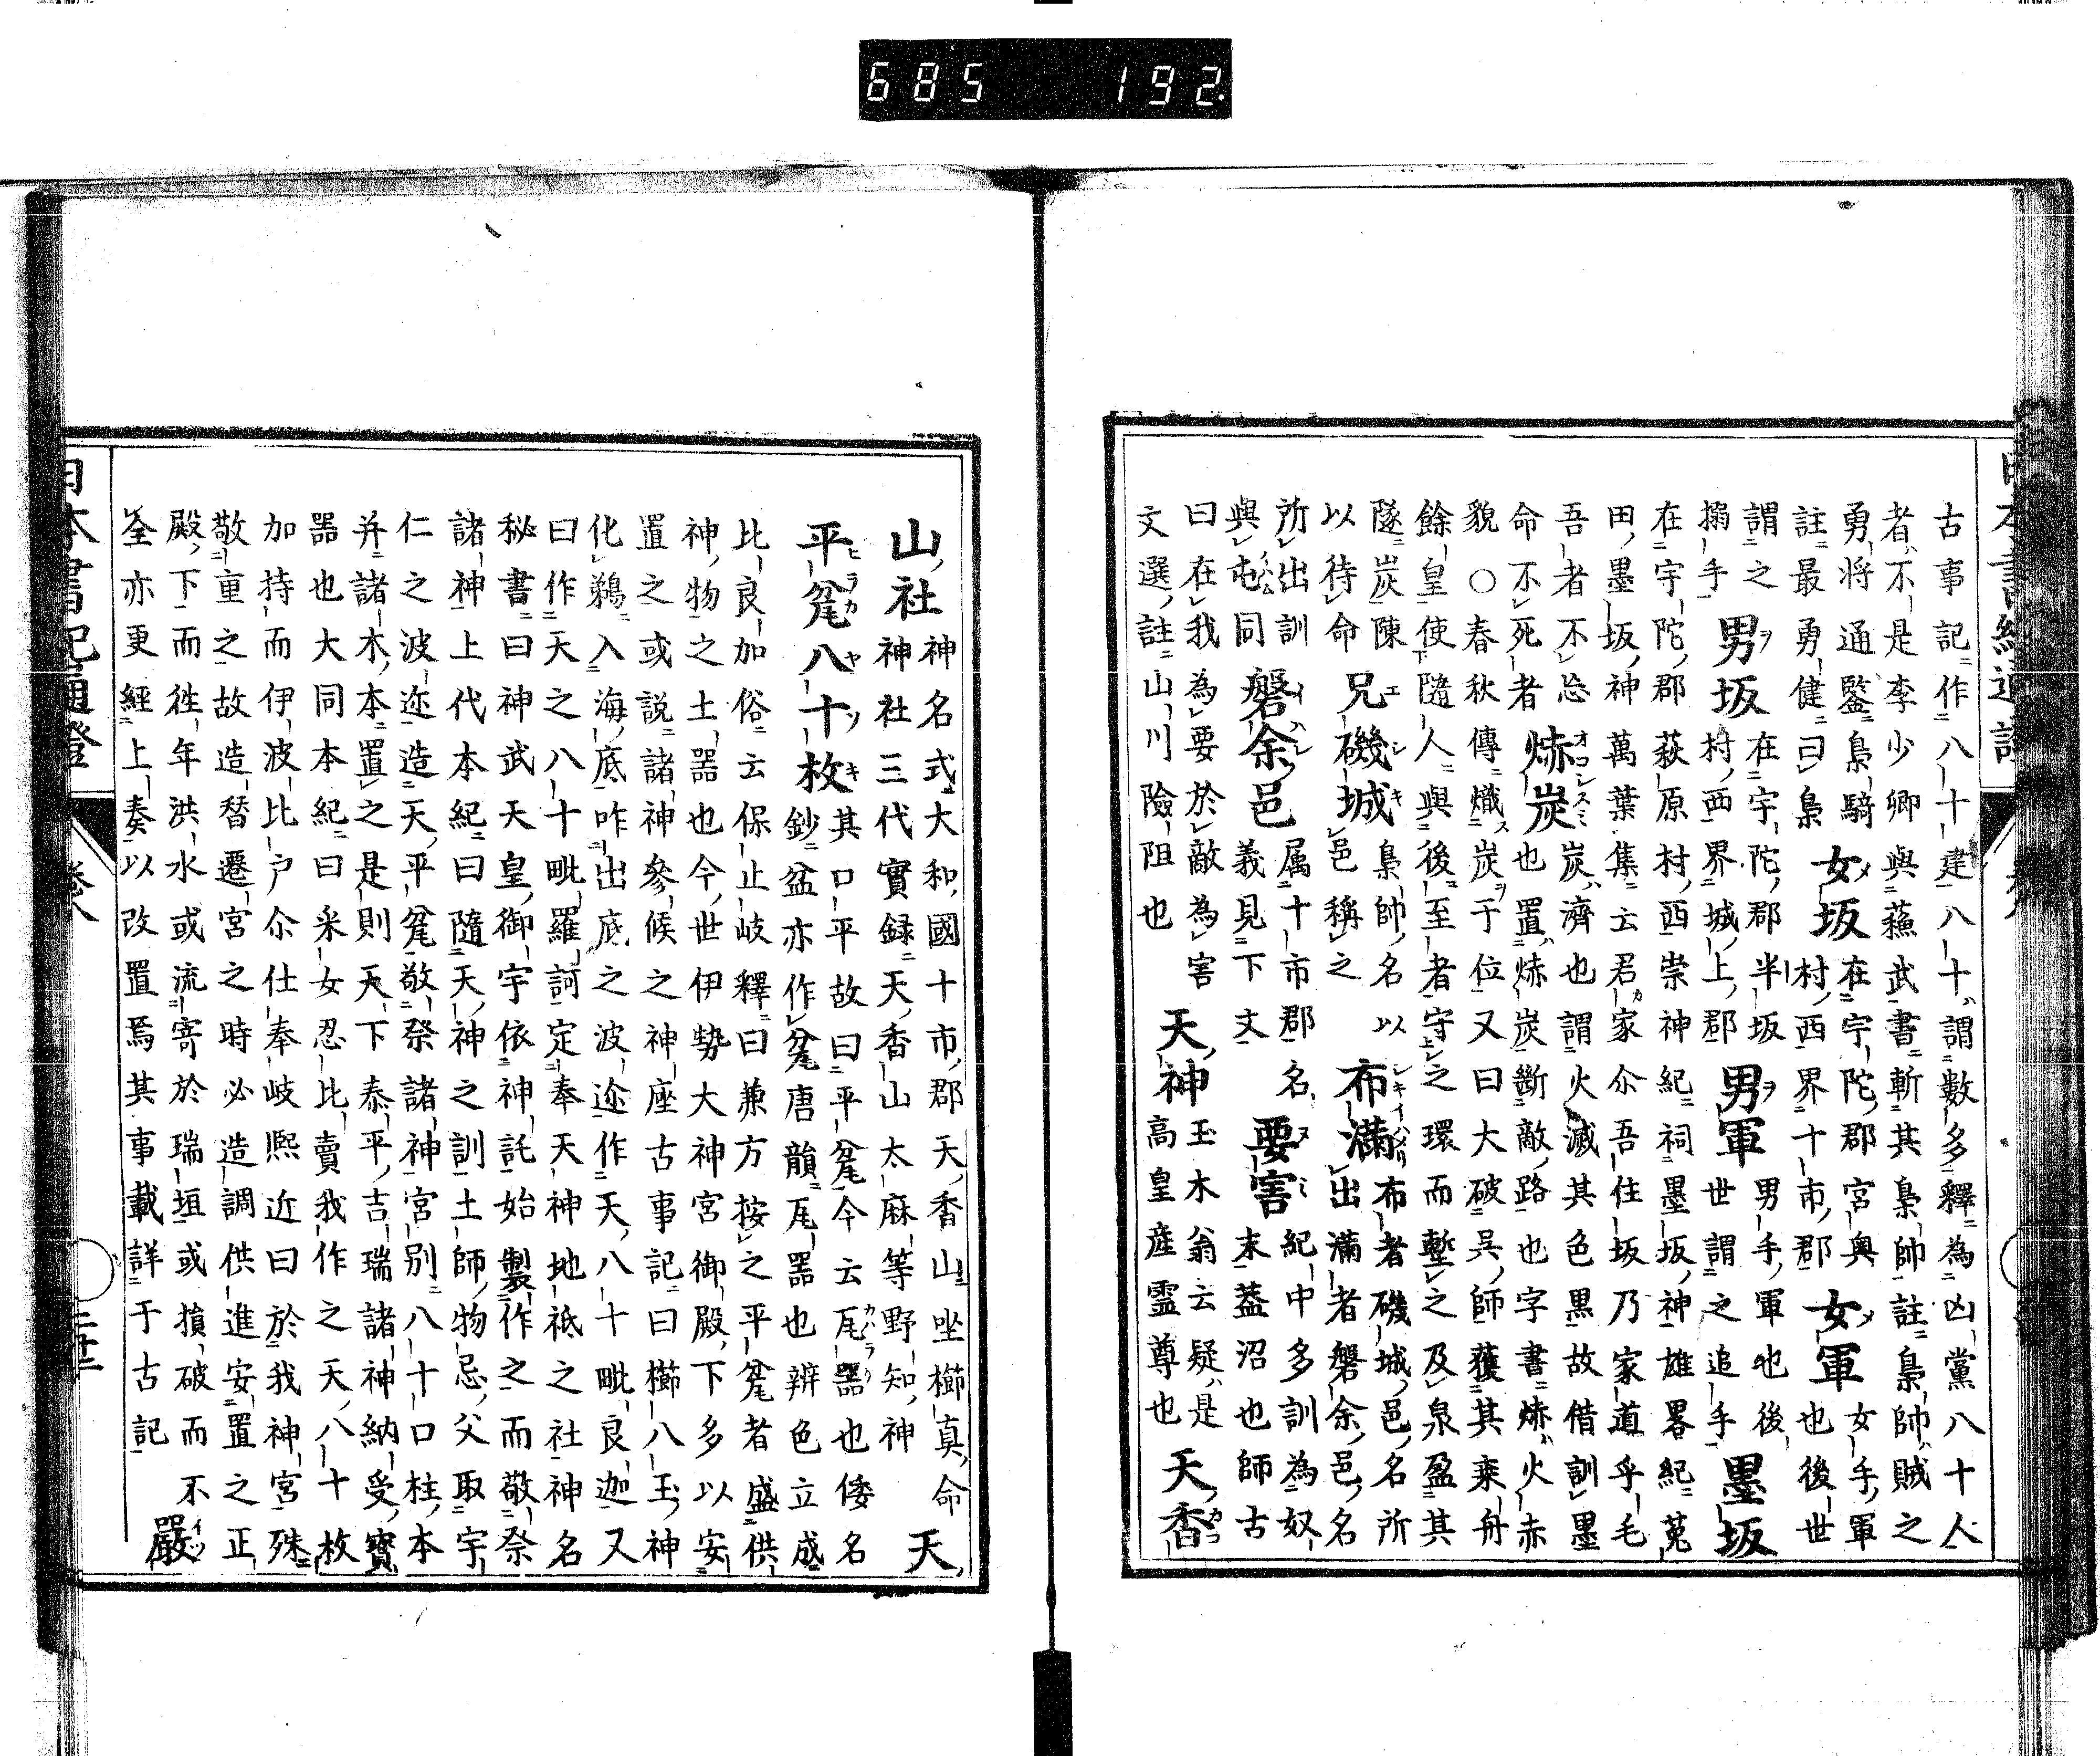 685 192
古事記作八十建八十謂數多釋為凶黨八十人
者不是李少卿與蘓武書斬其梟帥註梟帥賊之
勇將通鑒梟騎
註最勇健曰梟
女坂在宇陀郡宮奥
村西界十市郡
女軍女手軍
也後世
謂之
搦手
男坂在宇陀郡半坂
村西界城上郡
男軍男手軍也後
世謂之追手
墨坂
在宇陀郡萩原村西崇神紀祠墨坂神雄畧紀菟
田墨坂神萬葉集云君家尒吾住坂乃家道乎毛
吾者不忘
命不死者
焃炭炭濟也謂火滅其色黒故借訓墨
也置焃炭斷敵路也字書焃火赤
貌○春秋傳熾炭于位又曰大破呉師獲其乗舟
餘皇使隨人與後至者守之環而塹之及泉盈其
隧炭陳
以待命
兄磯城梟帥名以
邑稱之
布滿布者磯城邑名所
出滿者磐余邑名
所出訓
與屯同
磐余邑属十市郡名
義見下文
要害紀中多訓為奴
末葢沼也師古
曰在我為要於敵為害
文選註山川險阻也
天神玉木翁云疑是
高皇産霊尊也
天香
山社神名式大和國十市郡天香山坐櫛真命
神社三代實録天香山太麻等野知神
天
平瓫八十枚其口平故曰平瓫今云瓦器也倭名
鈔盆亦作瓫唐韻瓦器也辨色立成
比良加俗云保止岐釋曰兼方按之平瓫者盛供
神物之土器也今世伊勢大神宮御殿下多以安
置之或說諸神參候之神座古事記曰櫛八玉神
化鵜入海底咋出底之波迩作天八十毗良迦又
曰作天之八十毗羅訶定奉天神地祇之社神名
秘書曰神武天皇御宇依神託始製作之而敬祭
諸神上代本紀曰隨天神之訓土師物忌父取宇
仁之波迩造天平瓫敬祭諸神宮別八十口柱本
并諸木本置之是則天下泰平吉瑞諸神納受寳
器也大同本紀曰采女忍比賣我作之天八十枚
加持而伊波比戸尒仕奉岐熈近曰於我神宮殊
敬重之故造替遷宮之時必造調供進安置之正
殿下而徃年洪水或流寄於瑞垣或損破而不
全亦更經上奏以改置焉其事載詳于古記
嚴
日本書紀通證 卷八